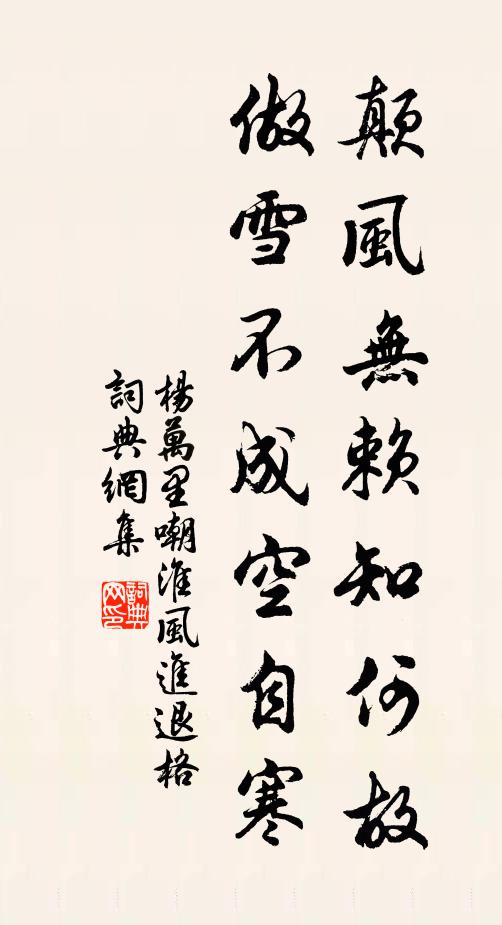 顛風無賴知何故
做雪不成空自寒
楊萬里嘲淮風進退格
詞典網集
詞典网印